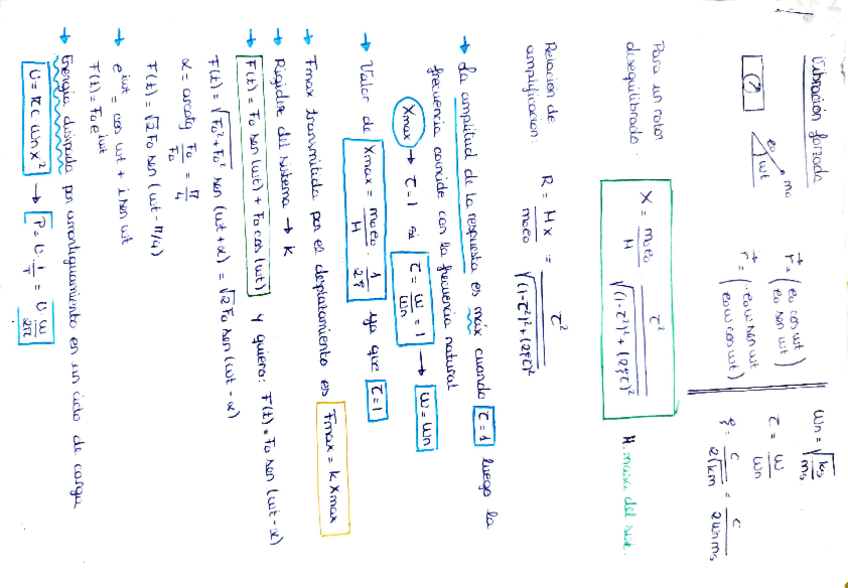 Vibración forzada
e₀ m₀
wt
r⃗ = (e₀ cos wt
e₀ sen wt)
ṙ⃗ = (-e₀w sen wt
e₀w cos wt)
Wn = √(ks/ms)
τ = w/wn
ξ = c/2√km = c/2wnms
Para un rotor desequilibrado:
X = m₀e₀/M · τ²/√((1-τ²)²+(2ξτ)²)
M: masa del sist.
Relación de amplificación:
R = Mx/m₀e₀ = τ²/√((1-τ²)²+(2ξτ)²)
→ La amplitud de la respuesta es máx cuando τ=1 luego la
frecuencia coincide con la frecuencia natural
Xmax → τ=1 si τ = w/wn = 1 → w = wn
→ Valor de Xmax = m₀e₀/M · 1/2ξ ya que τ=1
→ Fmax transmitida por el desplazamiento es Fmax = k Xmax
→ Rigidez del sistema → k
→ F(t) = F₀ sen(wt) + F₀ cos(wt) y quiero: F(t) = F₀ sen(wt-α)
F(t) = √(F₀²+F₀²) sen(wt+α) = √2 F₀ sen(wt-α)
α = arctg F₀/F₀ = π/4
F(t) = √2 F₀ sen(wt-π/4)
→ e^iwt = cos wt + i sen wt
F(t) = F₀ e^iwt
→ Energía disipada por amortiguamiento en un ciclo de carga
U = πc wn x² → P = U · 1/T = U w/2π